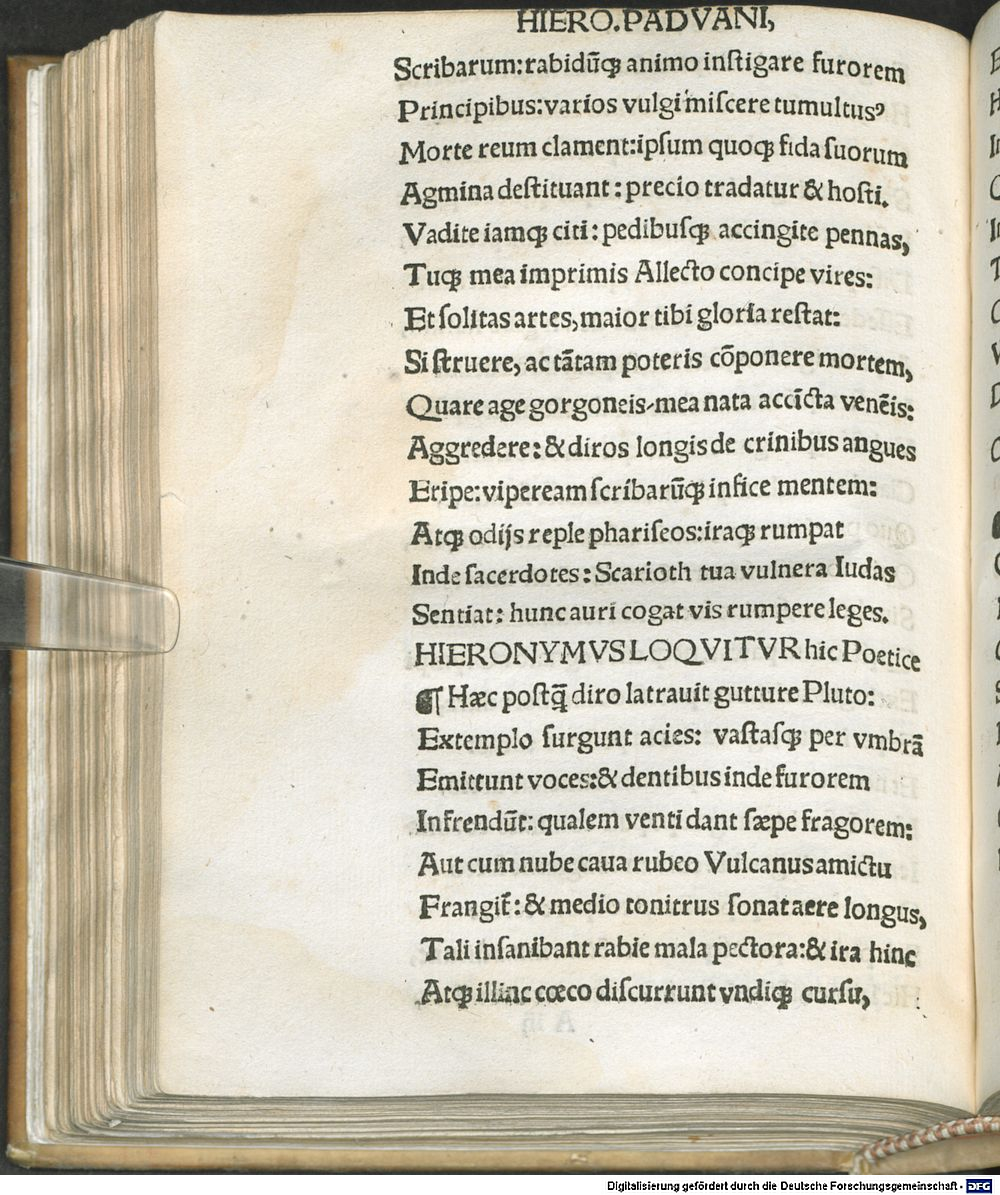 HIERO.PADVANI,
Scribarum:rabidũqꝫ animo inſtigare furorem
Principibus:varios vulgi miſcere tumultusꝰ
Morte reum clament:ipſum quoqꝫ fida ſuorum
Agmina deſtituant : precio tradatur & hoſti.
Vadite iamqꝫ citi : pedibuſqꝫ accingite pennas,
Tuqꝫ mea imprimis Allecto concipe vires:
Et ſolitas artes, maior tibi gloria reſtat:
Si ſtruere, ac tãtam poteris cõponere mortem,
Quare age gorgoneis-mea nata accĩcta venẽis:
Aggredere: & diros longis de crinibus angues
Eripe:vipeream ſcribarũqꝫ infice mentem:
Atqꝫ odijs reple phariſeos:iraqꝫ rumpat
Inde ſacerdotes: Scarioth tua vulnera Iudas
Sentiat: hunc auri cogat vis rumpere leges.
HIERONYMVS LOQVITVR hic Poetice
¶ Hæc poſtq̃ diro latrauit gutture Pluto:
Extemplo ſurgunt acies: vaſtaſqꝫ per vmbrã
Emittunt voces:& dentibus inde furorem
Infrendũt: qualem venti dant ſæpe fragorem:
Aut cum nube caua rubeo Vulcanus amictu
Frangit̃: & medio tonitrus ſonat aere longus,
Tali inſanibant rabie mala pectora:& ira hinc
Atqꝫ illinc cœco diſcurrunt vndiqꝫ curſu,
Digitalisierung gefördert durch die Deutsche Forschungsgemeinschaft - DFG